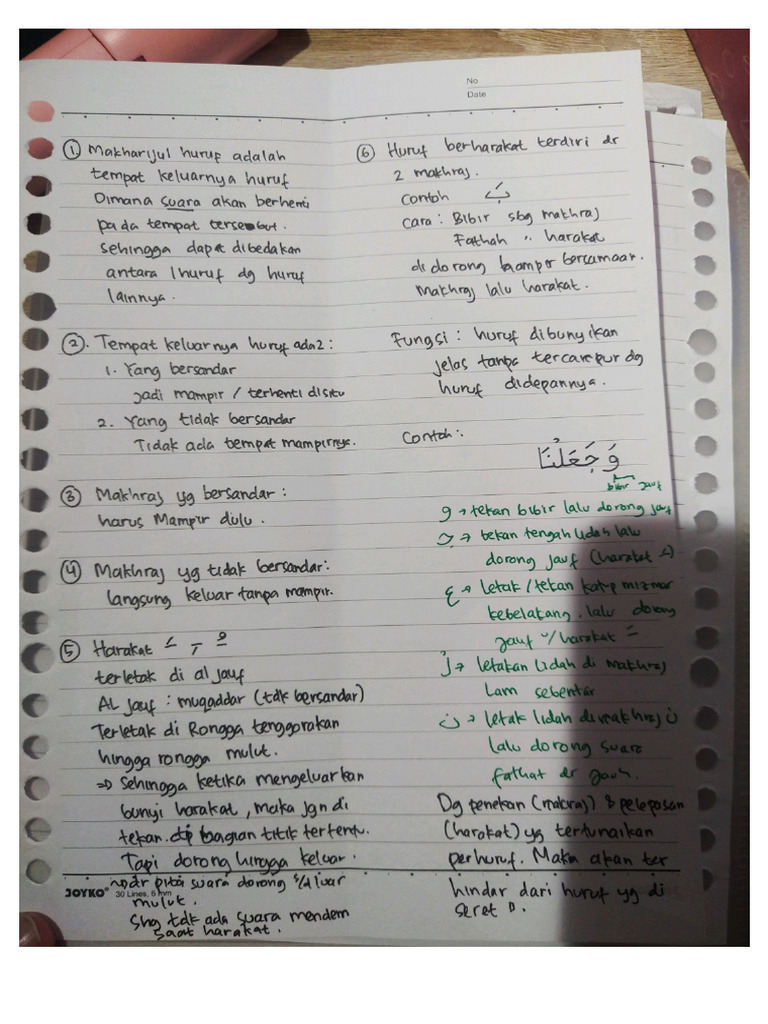 No
Date
① Makharijul huruf adalah
tempat keluarnya huruf
Dimana suara akan berhenti
pada tempat tersebut.
sehingga dapat dibedakan
antara 1 huruf dg huruf
lainnya.
②. Tempat keluarnya huruf ada 2 :
1. Yang bersandar
jadi mampir / terhenti disitu
2. Yang tidak bersandar
Tidak ada tempat mampirnya.
③ Makhraj yg bersandar :
harus Mampir dulu.
④ Makhraj yg tidak bersandar :
langsung keluar tanpa mampir.
⑤ Harakat ـَ ـِ ـُ
terletak di al jauf
AL jauf : muqaddar (tdk bersandar)
Terletak di Rongga tenggorakan
hingga rongga mulut.
⇒ Sehingga ketika mengeluarkan
bunyi harakat, maka jgn di
tekan bagian titik tertentu.
Tapi dorong hingga keluar.
→ dr pita suara dorong s/d luar
mulut.
Shg tdk ada suara mendem
saat harakat.
JOYKO® 30 Lines, 6 mm
⑥ Huruf berharakat terdiri dr
2 makhraj.
Contoh بَ
cara : Bibir sbg makhraj
Fathah " harakat
di dorong hampir bersamaan.
Makhraj lalu harakat.
Fungsi : huruf dibunyikan
jelas tanpa tercampur dg
huruf didepannya.
Contoh :
وَجَعَلْنَا
bibir jauf
و → tekan bibir lalu dorong jauf
ج → tekan tengah lidah lalu
dorong jauf (harakat ـَ)
ع → letak/tekan katup mizmar
kebelakang. lalu dorong
jauf u/ harakat ـَ
لْ → letakan lidah di makhraj
Lam sebentar
ن → letak lidah di makhraj ن
lalu dorong suara
fathah dr jauf.
Dg penekan (makhraj) & pelepasan
(harakat) yg tertunaikan
perhuruf. Maka akan ter
hindar dari huruf yg di
seret ².